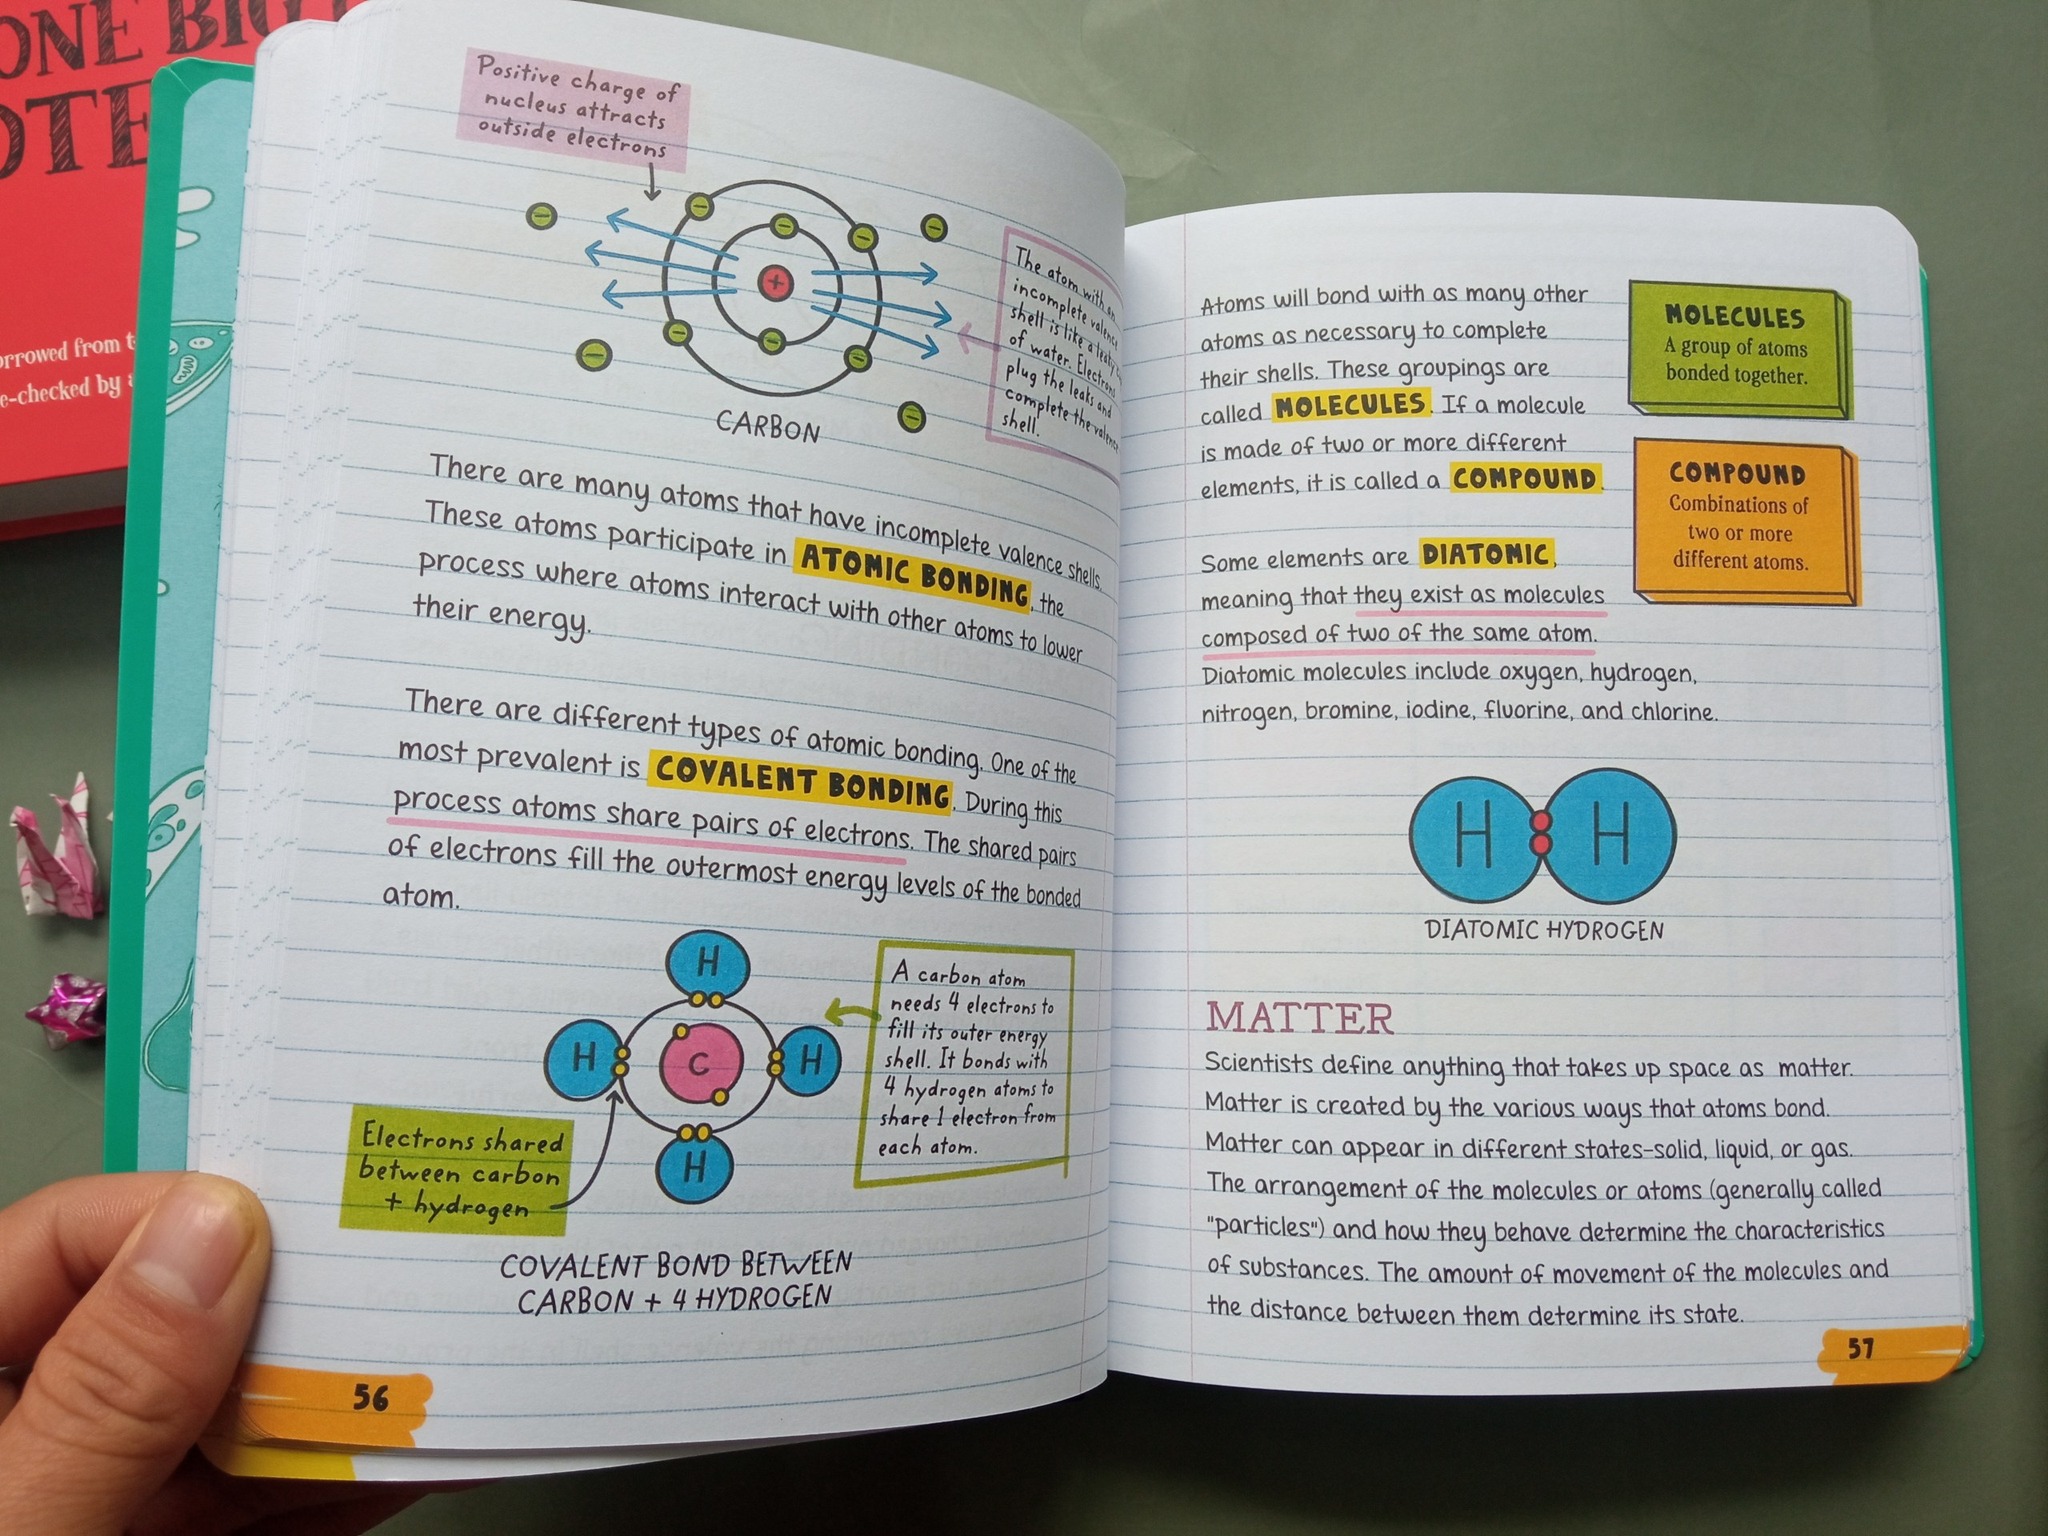 ONE BIG
OTE
orrowed from t
e-checked by a
Positive charge of
nucleus attracts
outside electrons
The atom with an
incomplete valence
shell is like a leaky
of water. Electrons
plug the leaks and
complete the valence
shell.
CARBON
There are many atoms that have incomplete valence shells.
These atoms participate in ATOMIC BONDING, the
process where atoms interact with other atoms to lower
their energy.
There are different types of atomic bonding. One of the
most prevalent is COVALENT BONDING. During this
process atoms share pairs of electrons. The shared pairs
of electrons fill the outermost energy levels of the bonded
atom.
H
H
C
H
H
A carbon atom
needs 4 electrons to
fill its outer energy
shell. It bonds with
4 hydrogen atoms to
share 1 electron from
each atom.
Electrons shared
between carbon
+ hydrogen
COVALENT BOND BETWEEN
CARBON + 4 HYDROGEN
56
Atoms will bond with as many other
atoms as necessary to complete
their shells. These groupings are
called MOLECULES. If a molecule
is made of two or more different
elements, it is called a COMPOUND.
MOLECULES
A group of atoms
bonded together.
COMPOUND
Combinations of
two or more
different atoms.
Some elements are DIATOMIC,
meaning that they exist as molecules
composed of two of the same atom.
Diatomic molecules include oxygen, hydrogen,
nitrogen, bromine, iodine, fluorine, and chlorine.
H H
DIATOMIC HYDROGEN
MATTER
Scientists define anything that takes up space as matter.
Matter is created by the various ways that atoms bond.
Matter can appear in different states–solid, liquid, or gas.
The arrangement of the molecules or atoms (generally called
"particles") and how they behave determine the characteristics
of substances. The amount of movement of the molecules and
the distance between them determine its state.
57